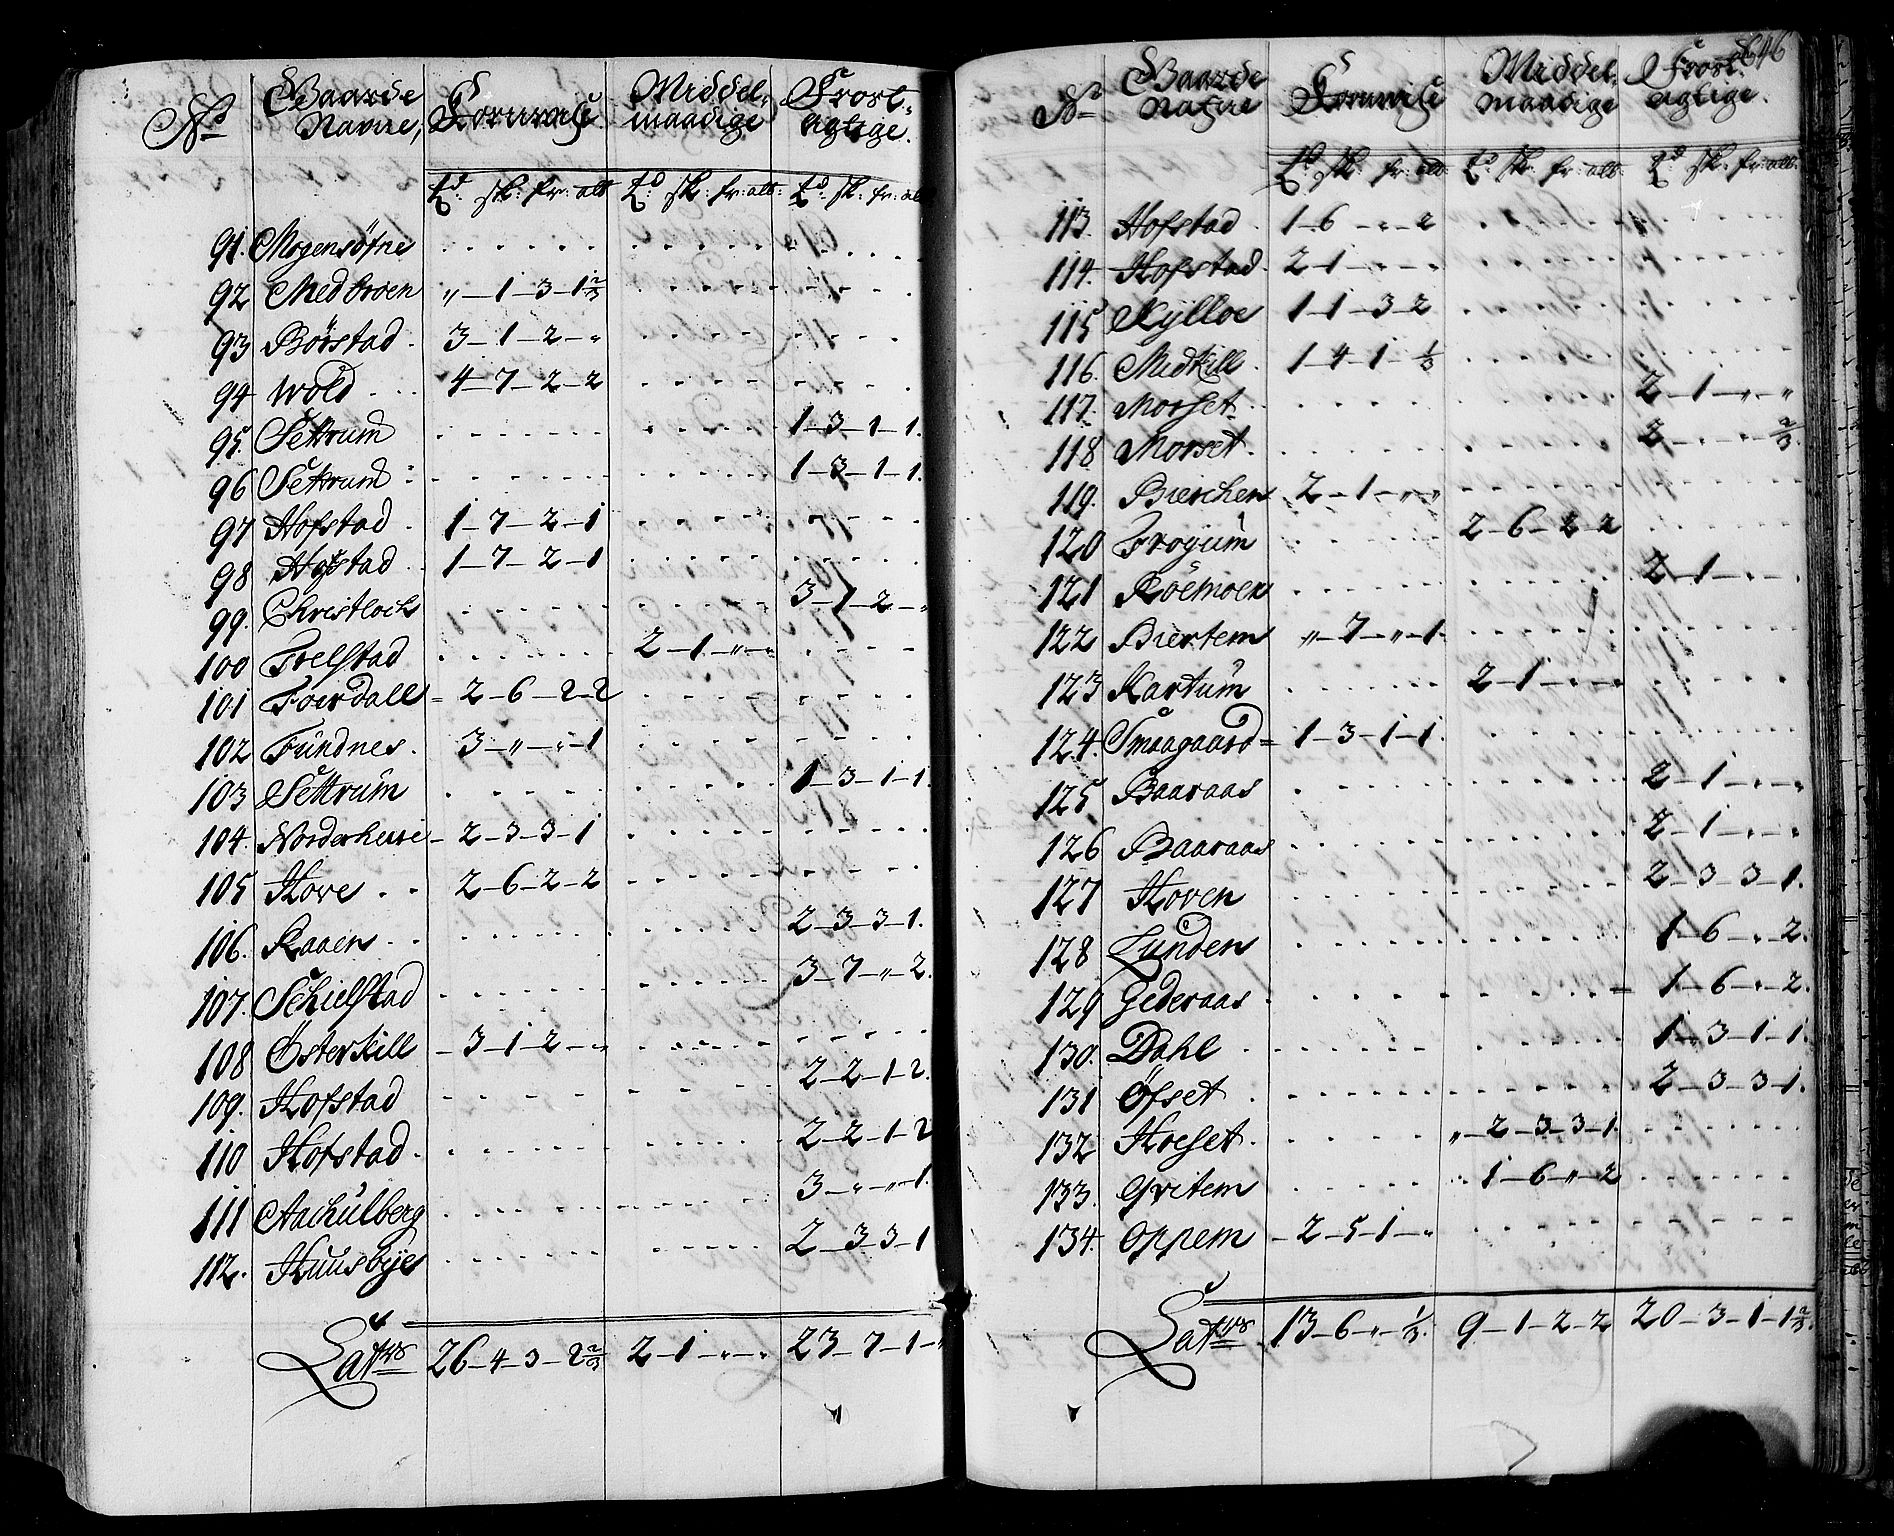 No Gaarde Navne, Kornvise Middelmaadige Frostagtige.
td. sk: fr: alb td. sk: fr: alb: td. sk: fr: alb
91. Mogensöfne
92 Medtroen " - 1 - 3 - 1 2/3
93 Börstad. 3 - 1 - 2 - "
94 Wold 4 - 7 - 2 - 2
95. Settrum 1 - 3 - 1 - 1.
96 Settrum 1 - 3 - 1 - 1.
97 Hofstad 1 - 7 - 2 - 1
98 Hofstad 1 - 7 - 2 - 1
99. Christloch 3 - 7 - 2 - "
100 Frelstad 2 - 1 - " - "
101 Foerdall 2 - 6 - 2 - 2
102 Fundnes. 3 - " - " - 1
103 Settrum 1 - 3 - 1 - 1.
104. Norderhuse 2 - 3 - 3 - 1
105 Hove 2 - 6 - 2 - 2
106. Raaen 2 - 3 - 3 - 1.
107. Schielstad 3 - 7 - " - 2.
108 Österkill 3 - 1 - 2 - "
109. Hofstad 2 - 2 - 1 - 2.
110 Hofstad 2 - 2 - 1 - 2
111 Aachulberg 3 - " - " - 1.
112. Huusbye 2 - 3 - 3 - 1
Latus 26 - 4 - 3 - 2 2/3 2 - 1 - " - " 23 - 7 - 1 - "
646
No Gaarde Nafne Kornvise Middelmaadige Frostagtige.
td. sk: fr: alb td. sk: fr: alb: td. sk: fr: alb:
113. Hofstad 1 - 6 - " - 2
114. Hofstad. 2 - 1 - " - "
115 Kylloe 1 - 1 - 3 - 2
116. Midkill 1 - 4 - 1 - 1/3
117. Morset 2 - 1 - " - "
118 Morset. 2 - " - " - 2/3.
119. Bierchen 2 - 1 - " - "
120 Frogum 2 - 6 - 2 - 2
121 Röemoen 2 - 1 - " - "
122 Biertem " - 7 - " - 1.
123 Kartum 2 - 1 - " - "
124. Smaagaard 1 - 3 - 1 - 1.
125 Baaraas 2 - 1 - " - "
126 Baaraas 2 - 1 - " - "
127 Hoven 2 - 3 - 3 - 1.
128 Lunden 1 - 6 - " - 2.
129 Gederaas 1 - 6 - " - 2.
130. Dahl 1 - 3 - 1 - 1.
131 Öfset 2 - 3 - 3 - 1.
132 Hofset. " - 2 - 3 - 3 - 1.
133. Gvitem 1 - 6 - " - 2
134. Oppem 2 - 5 - 1 - "
Latus 13 - 6 - " - 1/3. 9 - 1 - 2 - 2 20 - 3 - 1 - 1 2/3.